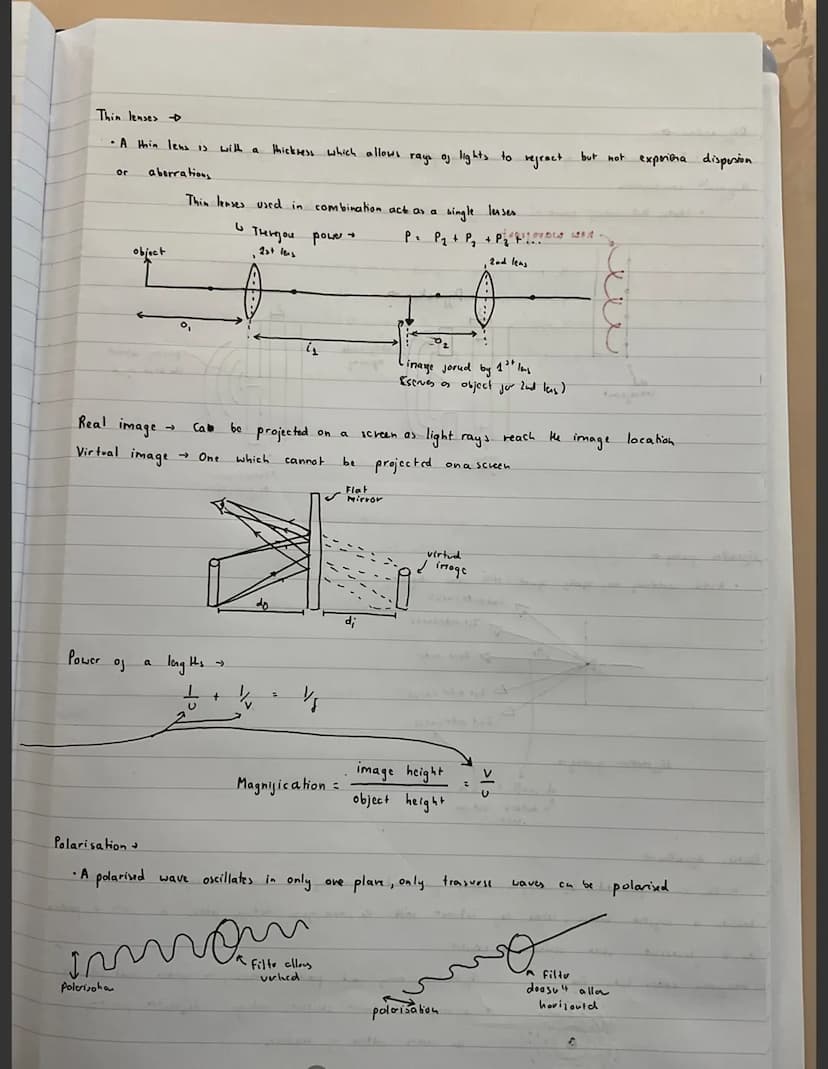 Thin lenses →
• A thin lens is with a thickness which allows rays of lights to refract but not experina dispersion
or aberrations
Thin lenses used in combination act as a single lenses
↳ Therefore power → P = P1 + P2 + P3 + ...
object
1st lens
2nd lens
o1
i1
o2
image formed by 1st lens
(serves as object for 2nd lens)
Real image → Can be projected on a screen as light rays reach the image location
Virtual image → One which cannot be projected on a screen
Flat
mirror
virtual
image
do
di
Power of a lengths →
1/u + 1/v = 1/f
Magnification = image height / object height = v/u
Polarisation →
• A polarised wave oscillates in only one plane, only trasverse waves can be polarised
Filter allows
vertical
polarisation
Filter
doesn't allow
horizontal
polarisation